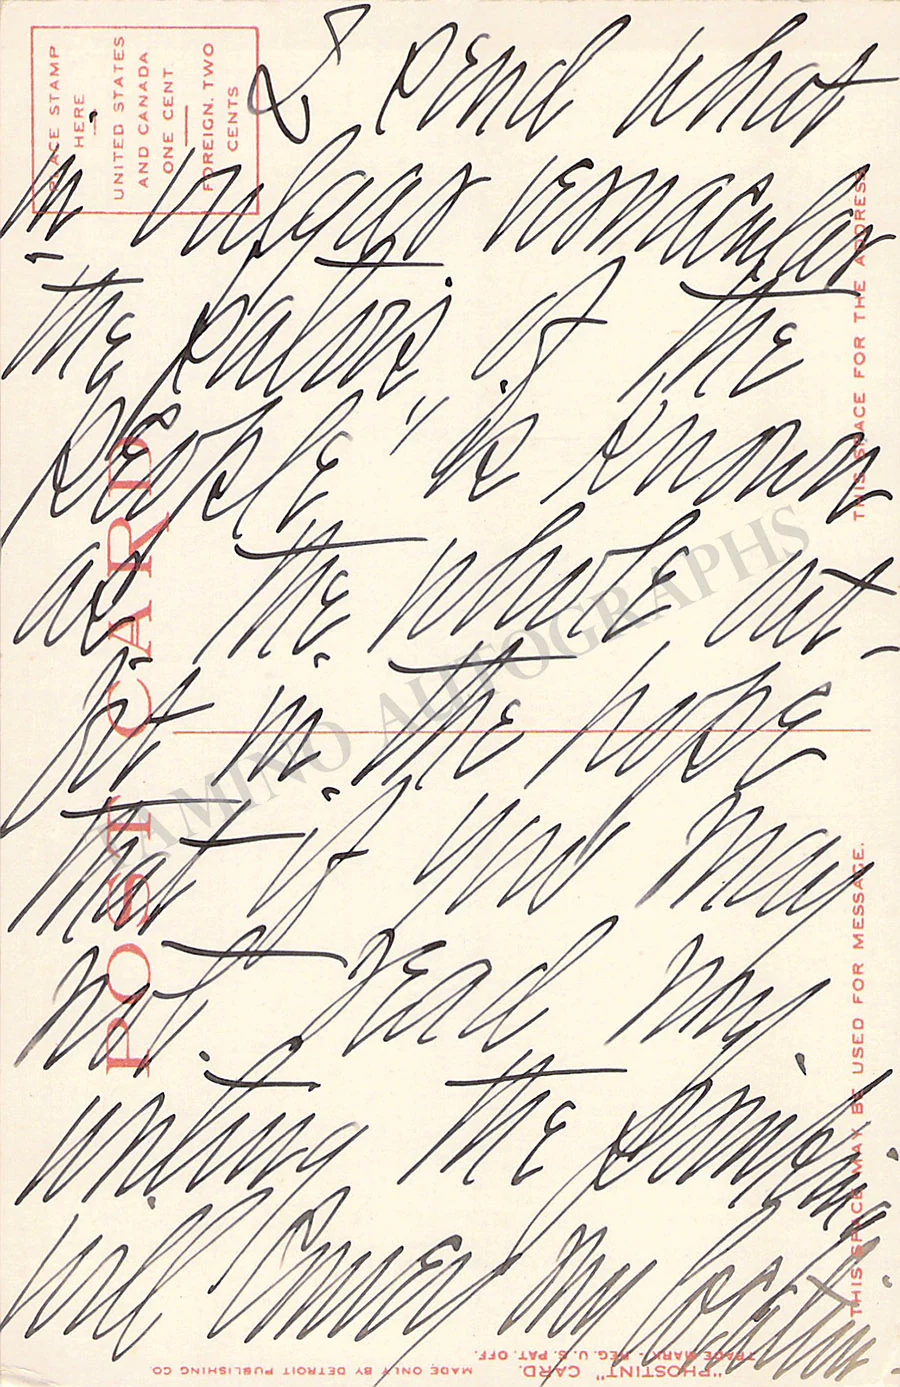 I send what
in vulgar vernacular
the patois of the
people" is known
as the whole out-
fit in the hope
that if you may
not read my
writing the printing
will convey my location
POST CARD
PLACE STAMP
HERE
UNITED STATES
AND CANADA
ONE CENT
FOREIGN. TWO
CENTS
THIS SPACE MAY BE USED FOR MESSAGE.
THIS SPACE FOR THE ADDRESS
"PHOSTINT" CARD.
TRADE MARK - REG. U. S. PAT. OFF.
MADE ONLY BY DETROIT PUBLISHING CO
TAMINO AUTOGRAPHS